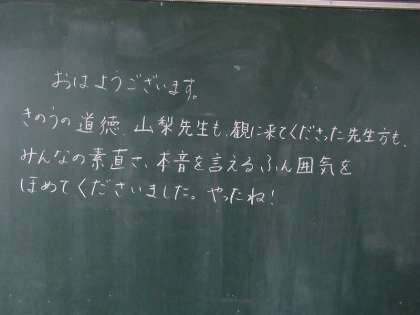 おはようございます。
きのうの道徳、山梨先生も、観に来てくださった先生方も、
みんなの素直さ、本音を言えるふん囲気を
ほめてくださいました。やったね！